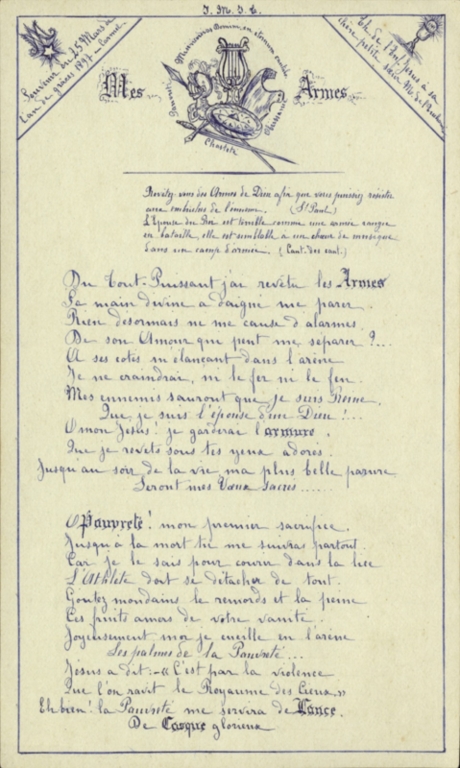 J. M. J. T.
Souvenir du 25 Mars de
l'an de grâces 1897
Mes Armes
Pauvreté
Chasteté
Th. de l'Enf. Jésus à sa
chère petite sœur M. de l'Eucharistie
Revêtez-vous des Armes de Dieu afin que vous puissiez résister
aux embûches de l'ennemi. (St Paul)
L'Epouse du Roi est terrible comme une armée rangée
en bataille, elle est semblable à un chœur de musique
dans un camp d'armée. (Cant. des cant.)
Du Tout-Puissant j'ai revêtu les Armes
Sa main divine a daigné me parer
Rien désormais ne me cause d'alarmes
De son Amour qui peut me séparer ?...
A ses côtés m'élançant dans l'arène
Je ne craindrai, ni le fer ni le feu.
Mes ennemis sauront que je suis Reine,
Que je suis l'épouse d'un Dieu !...
O mon Jésus ! je garderai l'armure,
Que je revêts sous tes yeux adorés.
Jusqu'au soir de la vie, ma plus belle parure
Seront mes Vœux sacrés......
O Pauvreté ! mon premier sacrifice.
Jusqu'à la mort tu me suivras partout.
Car je le sais pour courir dans la lice
L'Athlète doit se détacher de tout.
Goutez mondains le remords et la peine
Ces fruits amers de votre vanité.
Joyeusement moi je cueille en l'arène
Les palmes de la Pauvreté...
Jésus a dit : «C'est par la violence
Que l'on ravit le Royaume des Cieux.»
Eh bien ! la Pauvreté me servira de Lance,
De Casque glorieux